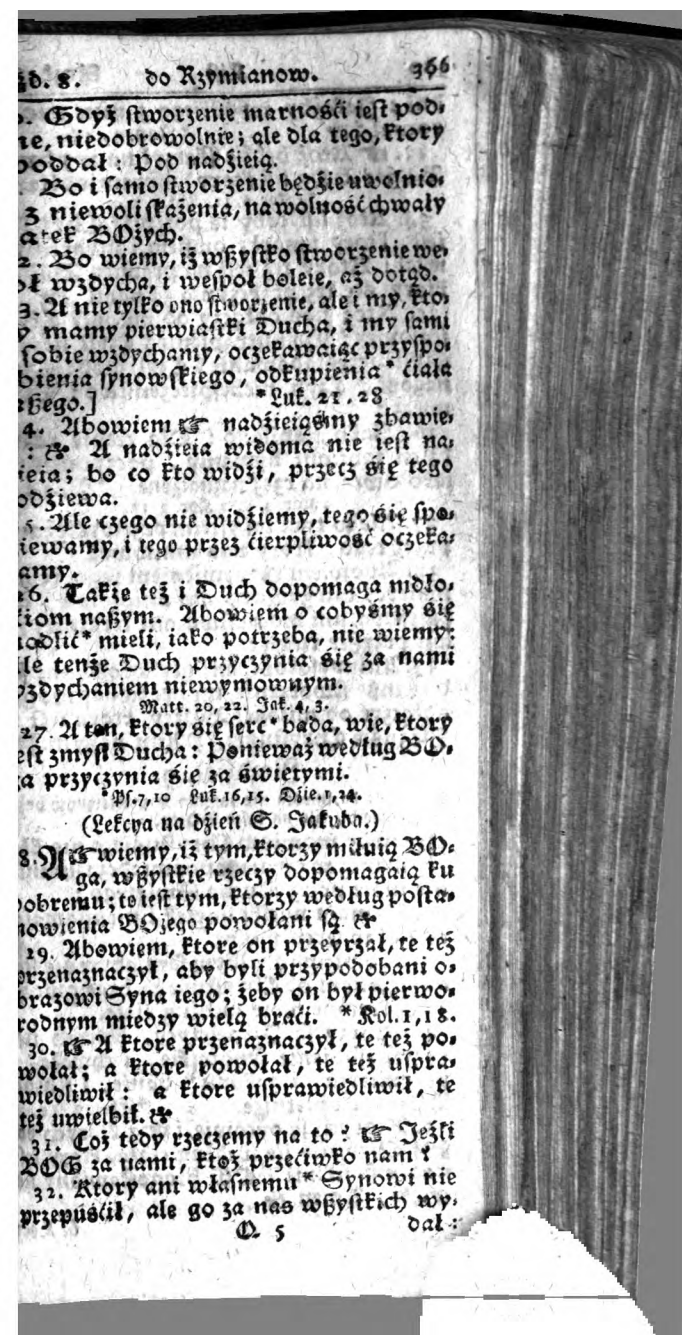 źd. 8. do Rzymianow. 366
. Gdyż stworzenie marnośći iest pod-
ne, niedobrowolnie; ale dla tego, ktory
poddał: Pod nadźieią.
Bo i samo stworzenie będźie uwolnio-
z niewoli skażenia, na wolność chwały
atek BOżych.
2. Bo wiemy, iż wszystko stworzenie we-
oł wzdycha, i wespoł boleie, aż dotąd.
3. A nie tylko ono stworzenie, ale i my, kto-
y mamy pierwiastki Ducha, i my sami
sobie wzdychamy, oczekawaiąc przyspo-
bienia synowskiego, odkupienia * ćiała
aszego.] * Luk. 21, 28
4. Abowiem ☞ nadźieiąśmy zbawie-
: A nadźieia widoma nie iest na-
ieia; bo co kto widźi, przecz się tego
odźiewa.
5. Ale czego nie widźiemy, tego się spo-
iewamy, i tego przez ćierpliwość oczeka-
amy.
26. Także też i Duch dopomaga mdło-
ćiom naszym. Abowiem o cobyśmy się
modlić* mieli, iako potrzeba, nie wiemy:
ale tenże Duch przyczynia się za nami
wzdychaniem niewymownym.
Matt. 20, 22. Jak. 4, 3.
27. A ten, ktory się serc * bada, wie, ktory
est zmysł Ducha: Ponieważ według BO-
ga przyczynia się za świętymi.
* Ps. 7, 10 Luk. 16, 15. Dźie. 1, 24.
(Lekcya na dźień S. Jakuba.)
8. A ☞ wiemy, iż tym, ktorzy miłuią BO-
ga, wszystkie rzeczy dopomagaią ku
dobremu; to iest tym, ktorzy według posta-
nowienia BOżego powołani są.
29. Abowiem, ktore on przeyrzał, te też
przenaznaczył, aby byli przypodobani o-
brazowi Syna iego; żeby on był pierwo-
rodnym miedzy wielą braći. * Kol. 1, 18.
30. ☞ A ktore przenaznaczył, te też po-
wołał; a ktore powołał, te też uspra-
wiedliwił: a ktore usprawiedliwił, te
też uwielbił.
31. Coż tedy rzeczemy na to? ☞ Jeźli
BOG za nami, ktoż przećiwko nam?
32. Ktory ani własnemu * Synowi nie
przepuśćił, ale go za nas wszystkich wy-
Q. 5 dał: